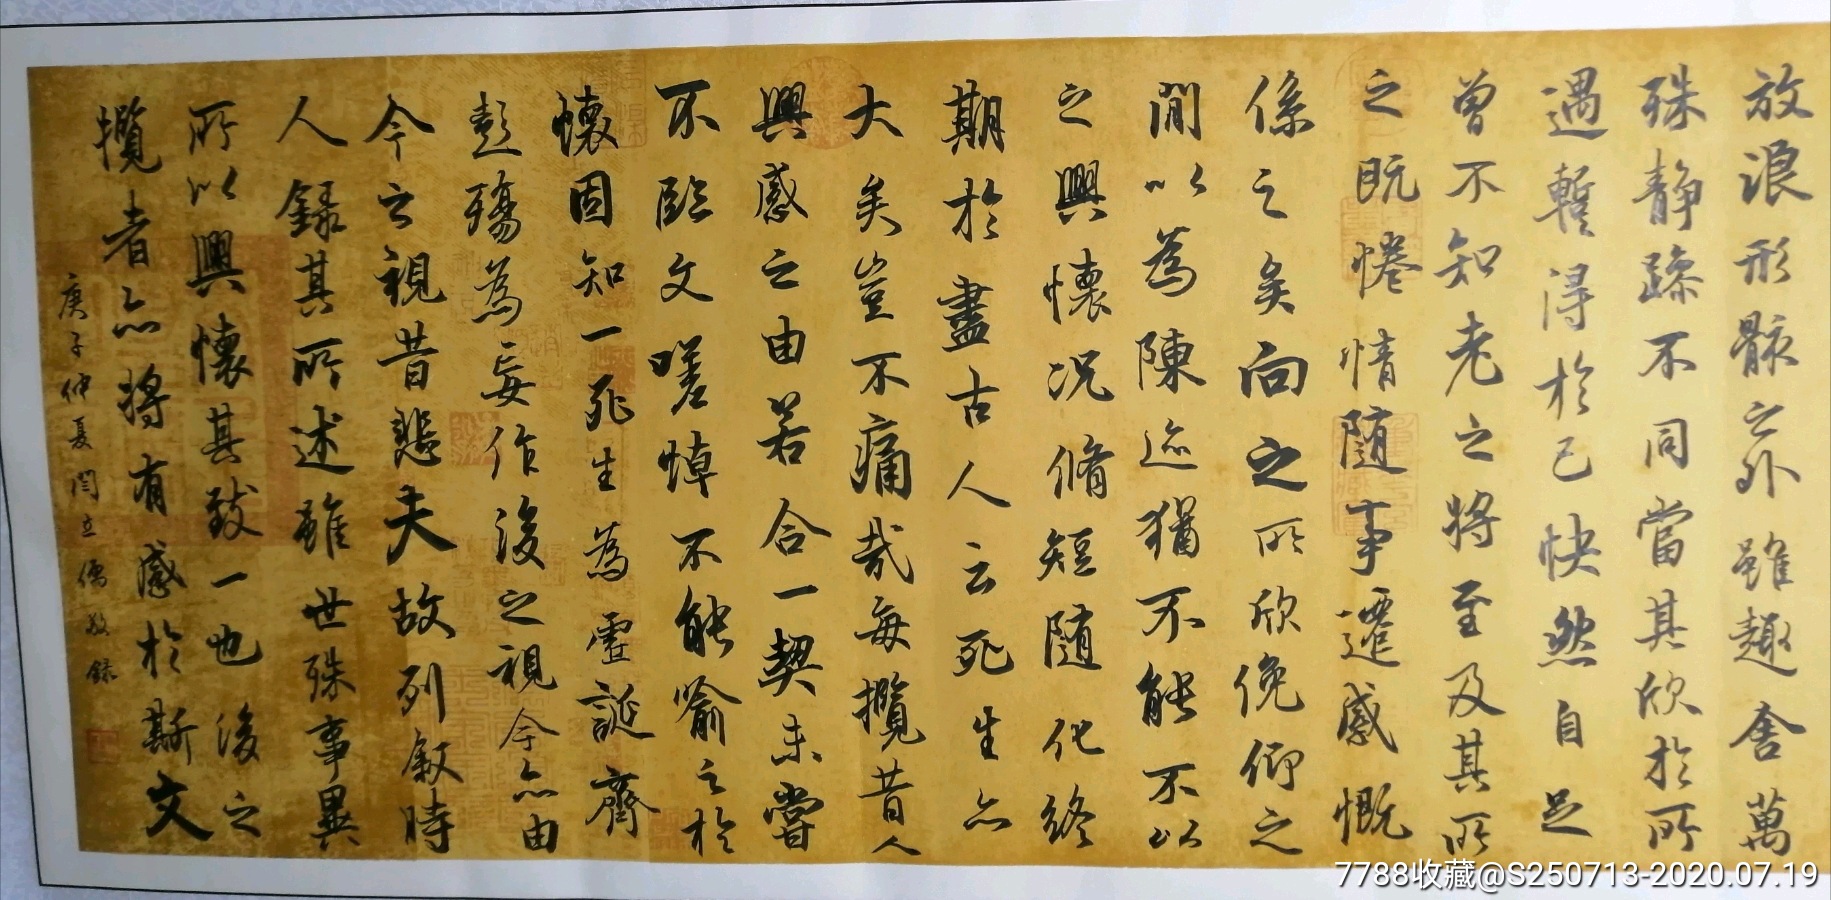 放浪形骸之外雖趣舍萬
殊静躁不同當其欣於所
遇暫得於己快然自足
曾不知老之將至及其所
之既惓情隨事遷感慨
係之矣向之所欣俛仰之
閒以為陳迹猶不能不以
之興懷况脩短隨化終
期於盡古人云死生亦
大矣豈不痛哉每攬昔人
興感之由若合一契未嘗
不臨文嗟悼不能喻之於
懷固知一死生為虛誕齊
彭殤為妄作後之視今亦由
今之視昔悲夫故列叙時
人録其所述雖世殊事異
所以興懷其致一也後之
攬者亦將有感於斯文
庚子仲夏閆立儒敬録
7788收藏@S250713-2020.07.19